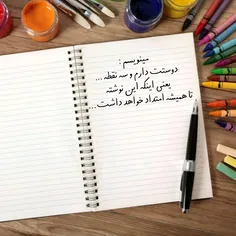 مینویسم :
دوستت دارم و سه نقطه ...
یعنی اینکه این نوشته
تا همیشه امتداد خواهد داشت ...